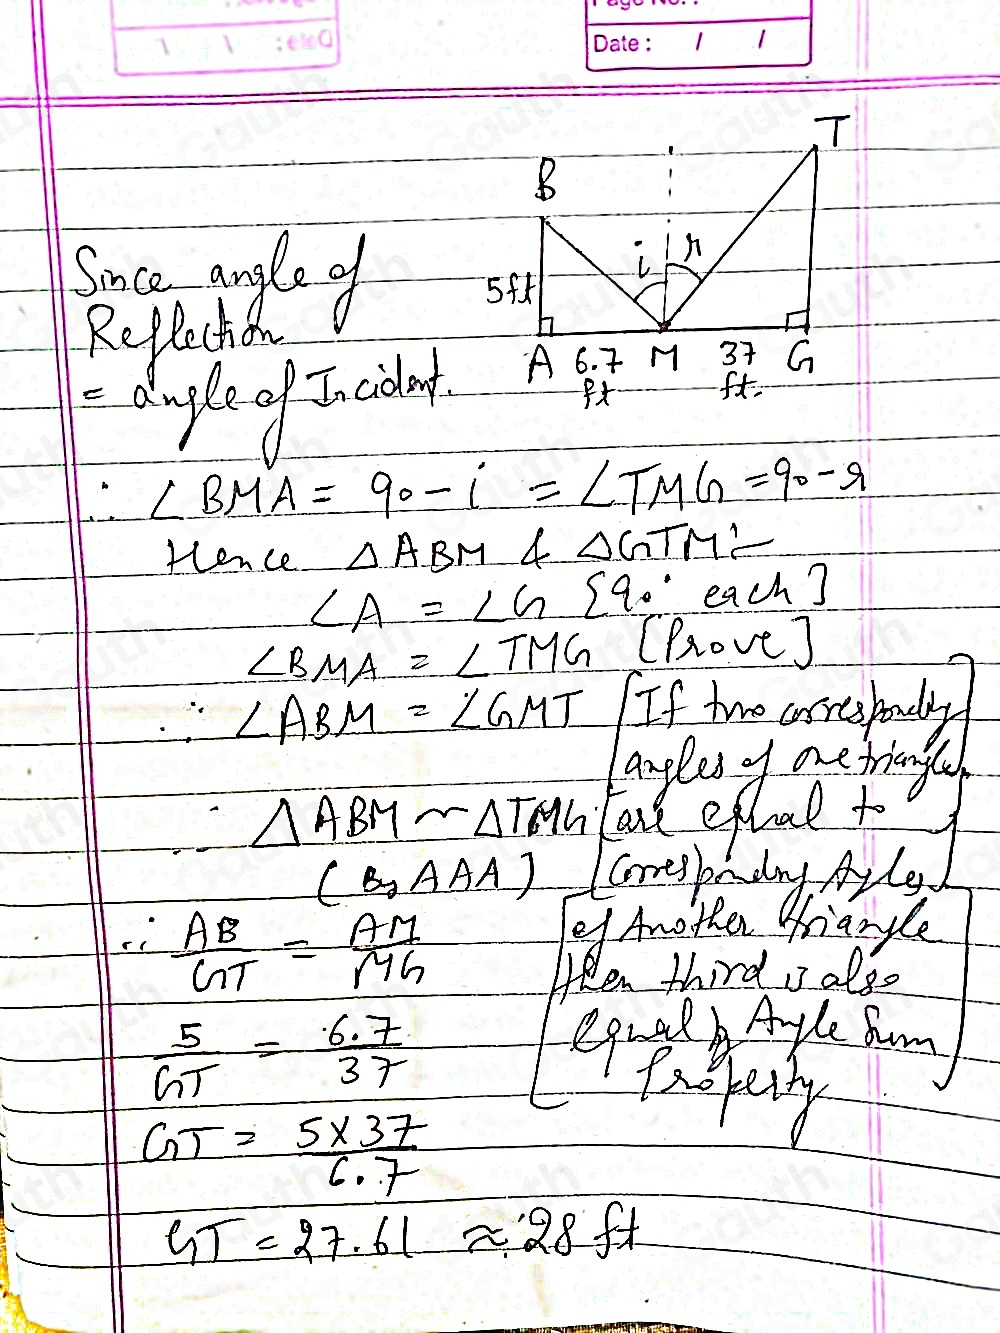 Page No. :
Date : / /
T
B
i r
5ft
A 6.7 ft M 37 ft. G
Since angle of
Reflection
= angle of Incident.
∴ ∠BMA = 90-i = ∠TMG = 90-r
Hence △ABM & △GTM :-
∠A = ∠G {90° each]
∠BMA = ∠TMG [Prove]
∴ ∠ABM = ∠GMT [If two corresponding
angles of one triangle
are equal to
corresponding Angles
of Another triangle
then third is also
equal by Angle Sum
Property]
∴ △ABM ~ △TMG
(By AAA)
∴ AB/GT = AM/MG
5/GT = 6.7/37
GT = 5×37/6.7
GT = 27.61 ≈ 28 ft
Gauth